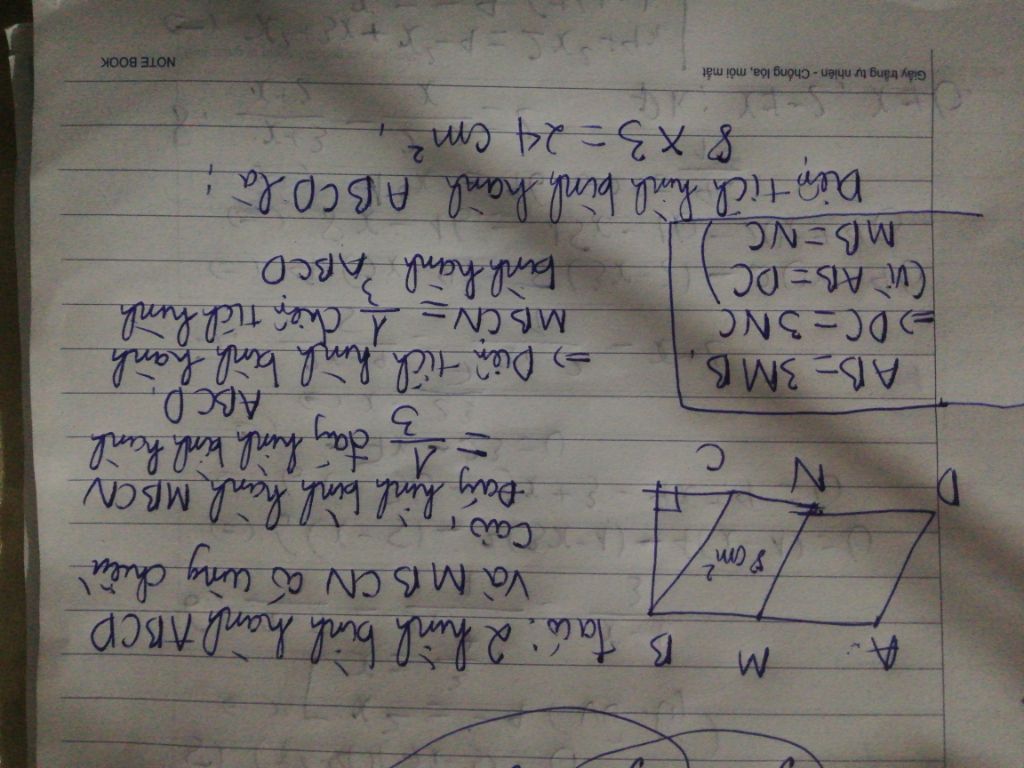 A M B
8 cm²
D N C
Ta có: 2 hình bình hành ABCD
và MBCN có cùng chiều
cao,
Đáy hình bình hành MBCN
= 1/3 đáy hình bình hành
ABCD,
AB = 3MB,
=> DC = 3NC
(vì AB = DC)
MB = NC
=> Diện tích hình bình hành
MBCN = 1/3 diện tích hình
bình hành ABCD
Diện tích hình bình hành ABCD là:
8 x 3 = 24 cm²,
Giấy trắng tự nhiên - Chống lóa, mỏi mắt
NOTE BOOK